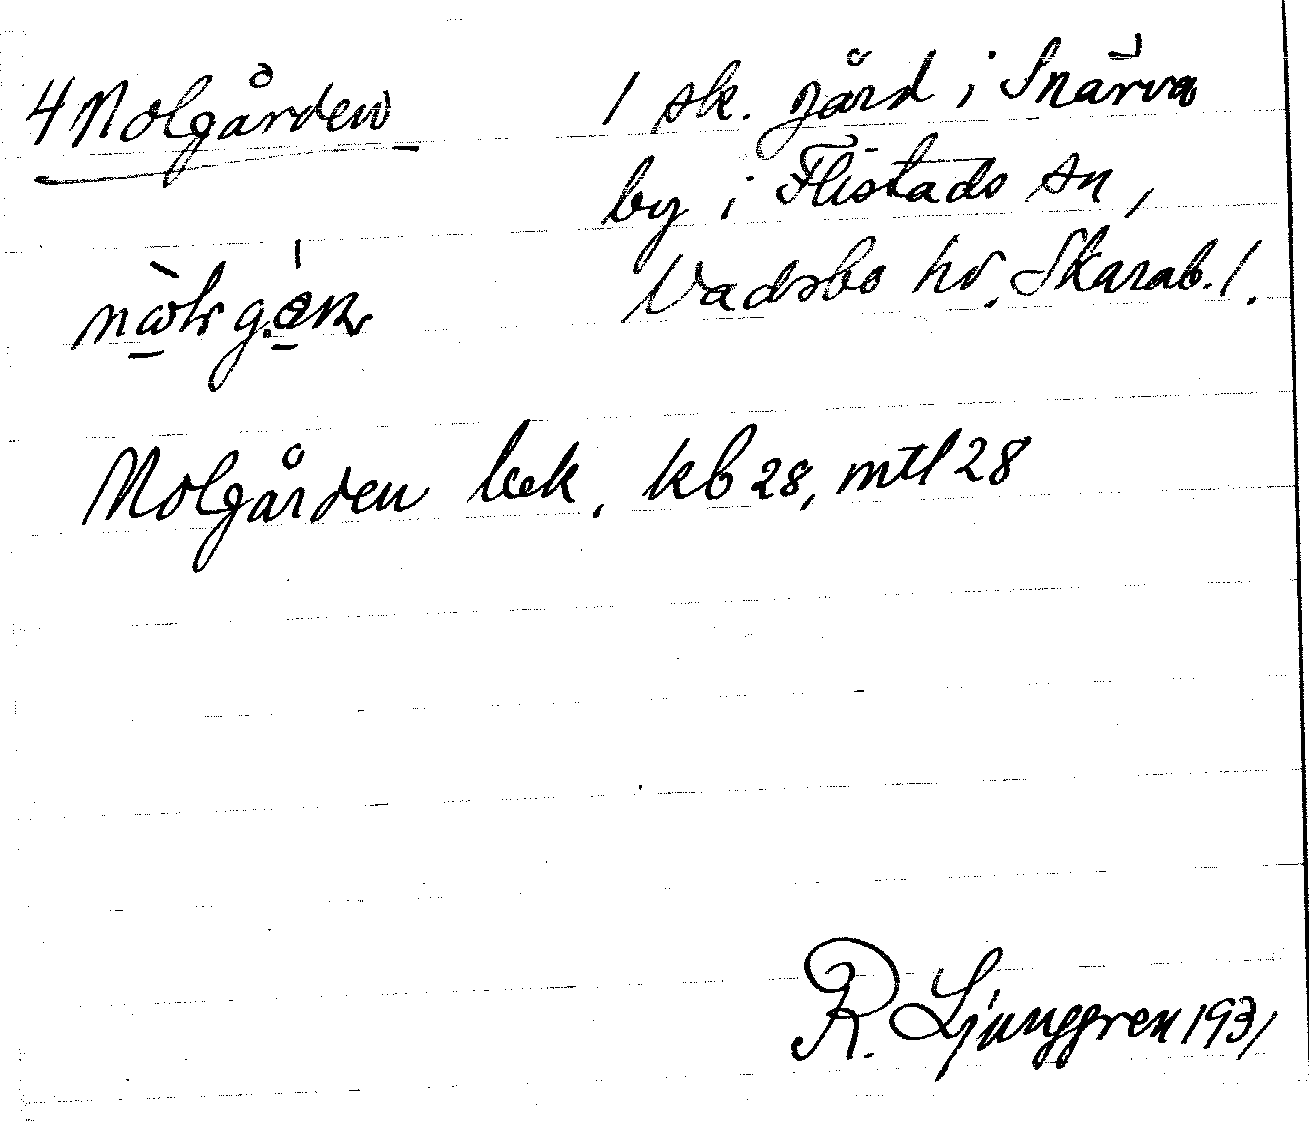 4 Nolgården
1 sk. gård i Snärva
by i Flistads sn,
Vadsbo hd. Skarab. l.
Nolgården bek, kb 28, mtl 28
R. Ljunggren 1931